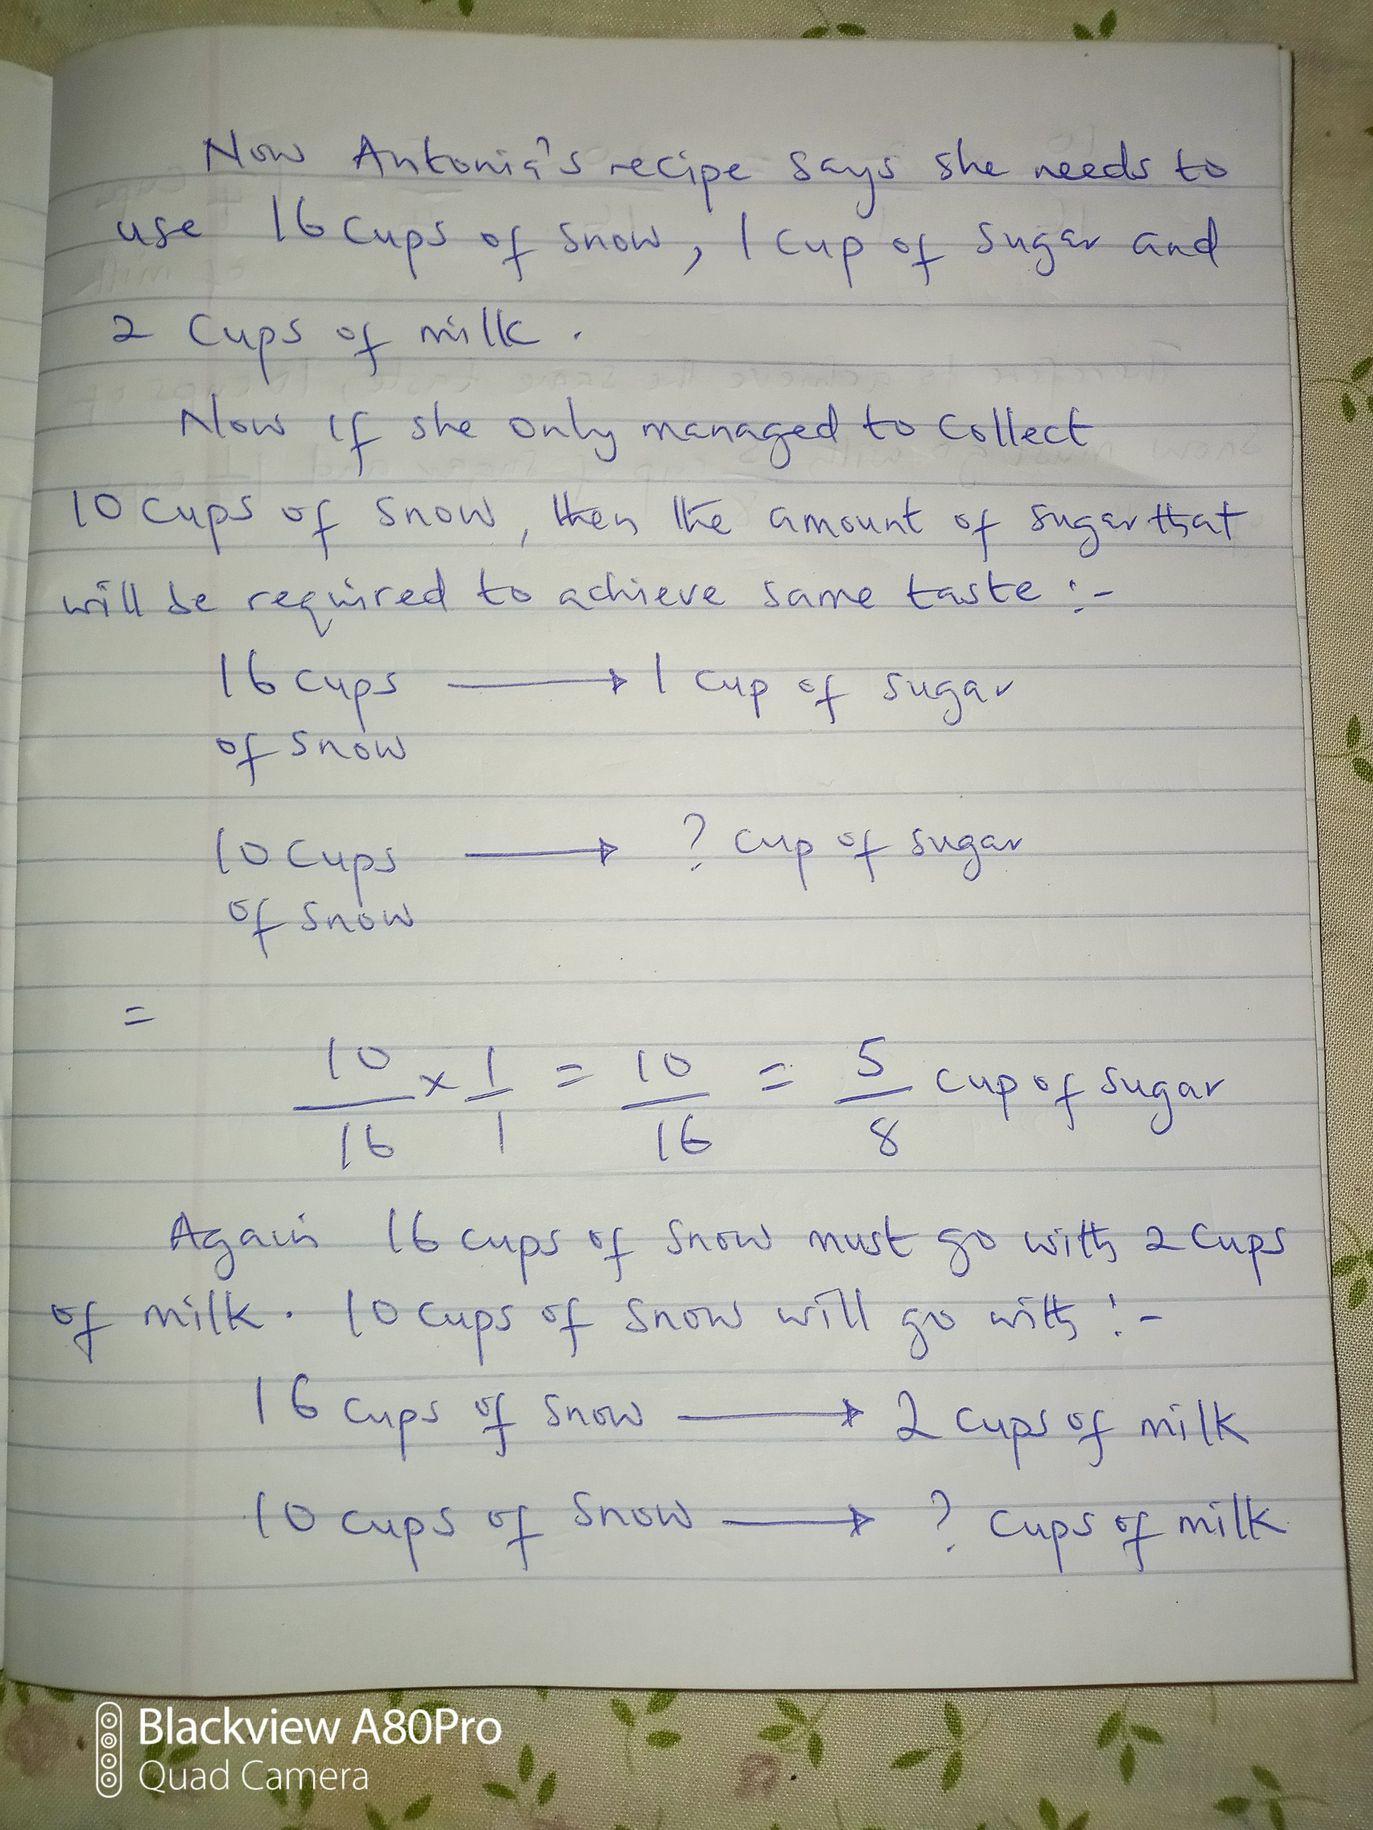 Now Antonia's recipe says she needs to
use 16 cups of snow, 1 cup of sugar and
2 cups of milk.
Now if she only managed to collect
10 cups of snow, then the amount of sugar that
will be required to achieve same taste :-
16 cups → 1 cup of sugar
of snow
10 cups → ? cup of sugar
of snow
=
10/16 × 1/1 = 10/16 = 5/8 cup of sugar
Again 16 cups of snow must go with 2 cups
of milk. 10 cups of snow will go with :-
16 cups of snow → 2 cups of milk
10 cups of snow → ? cups of milk
Blackview A80Pro
Quad Camera